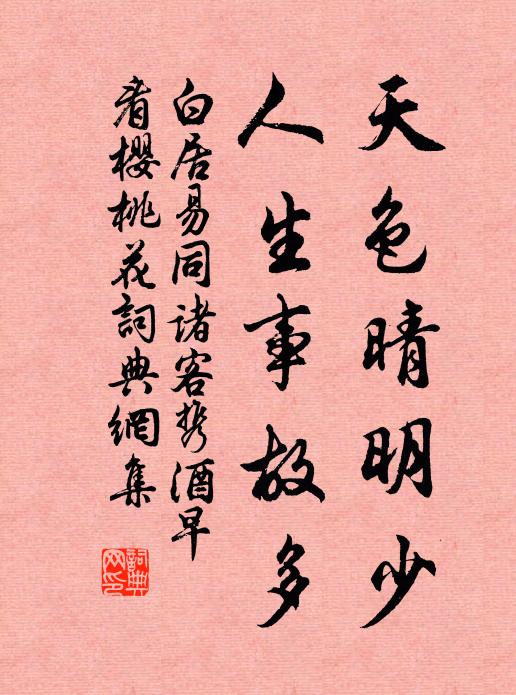 天色晴明少
人生事故多
白居易同诸客携酒早
看櫻桃花詞典網集
詞典
网印